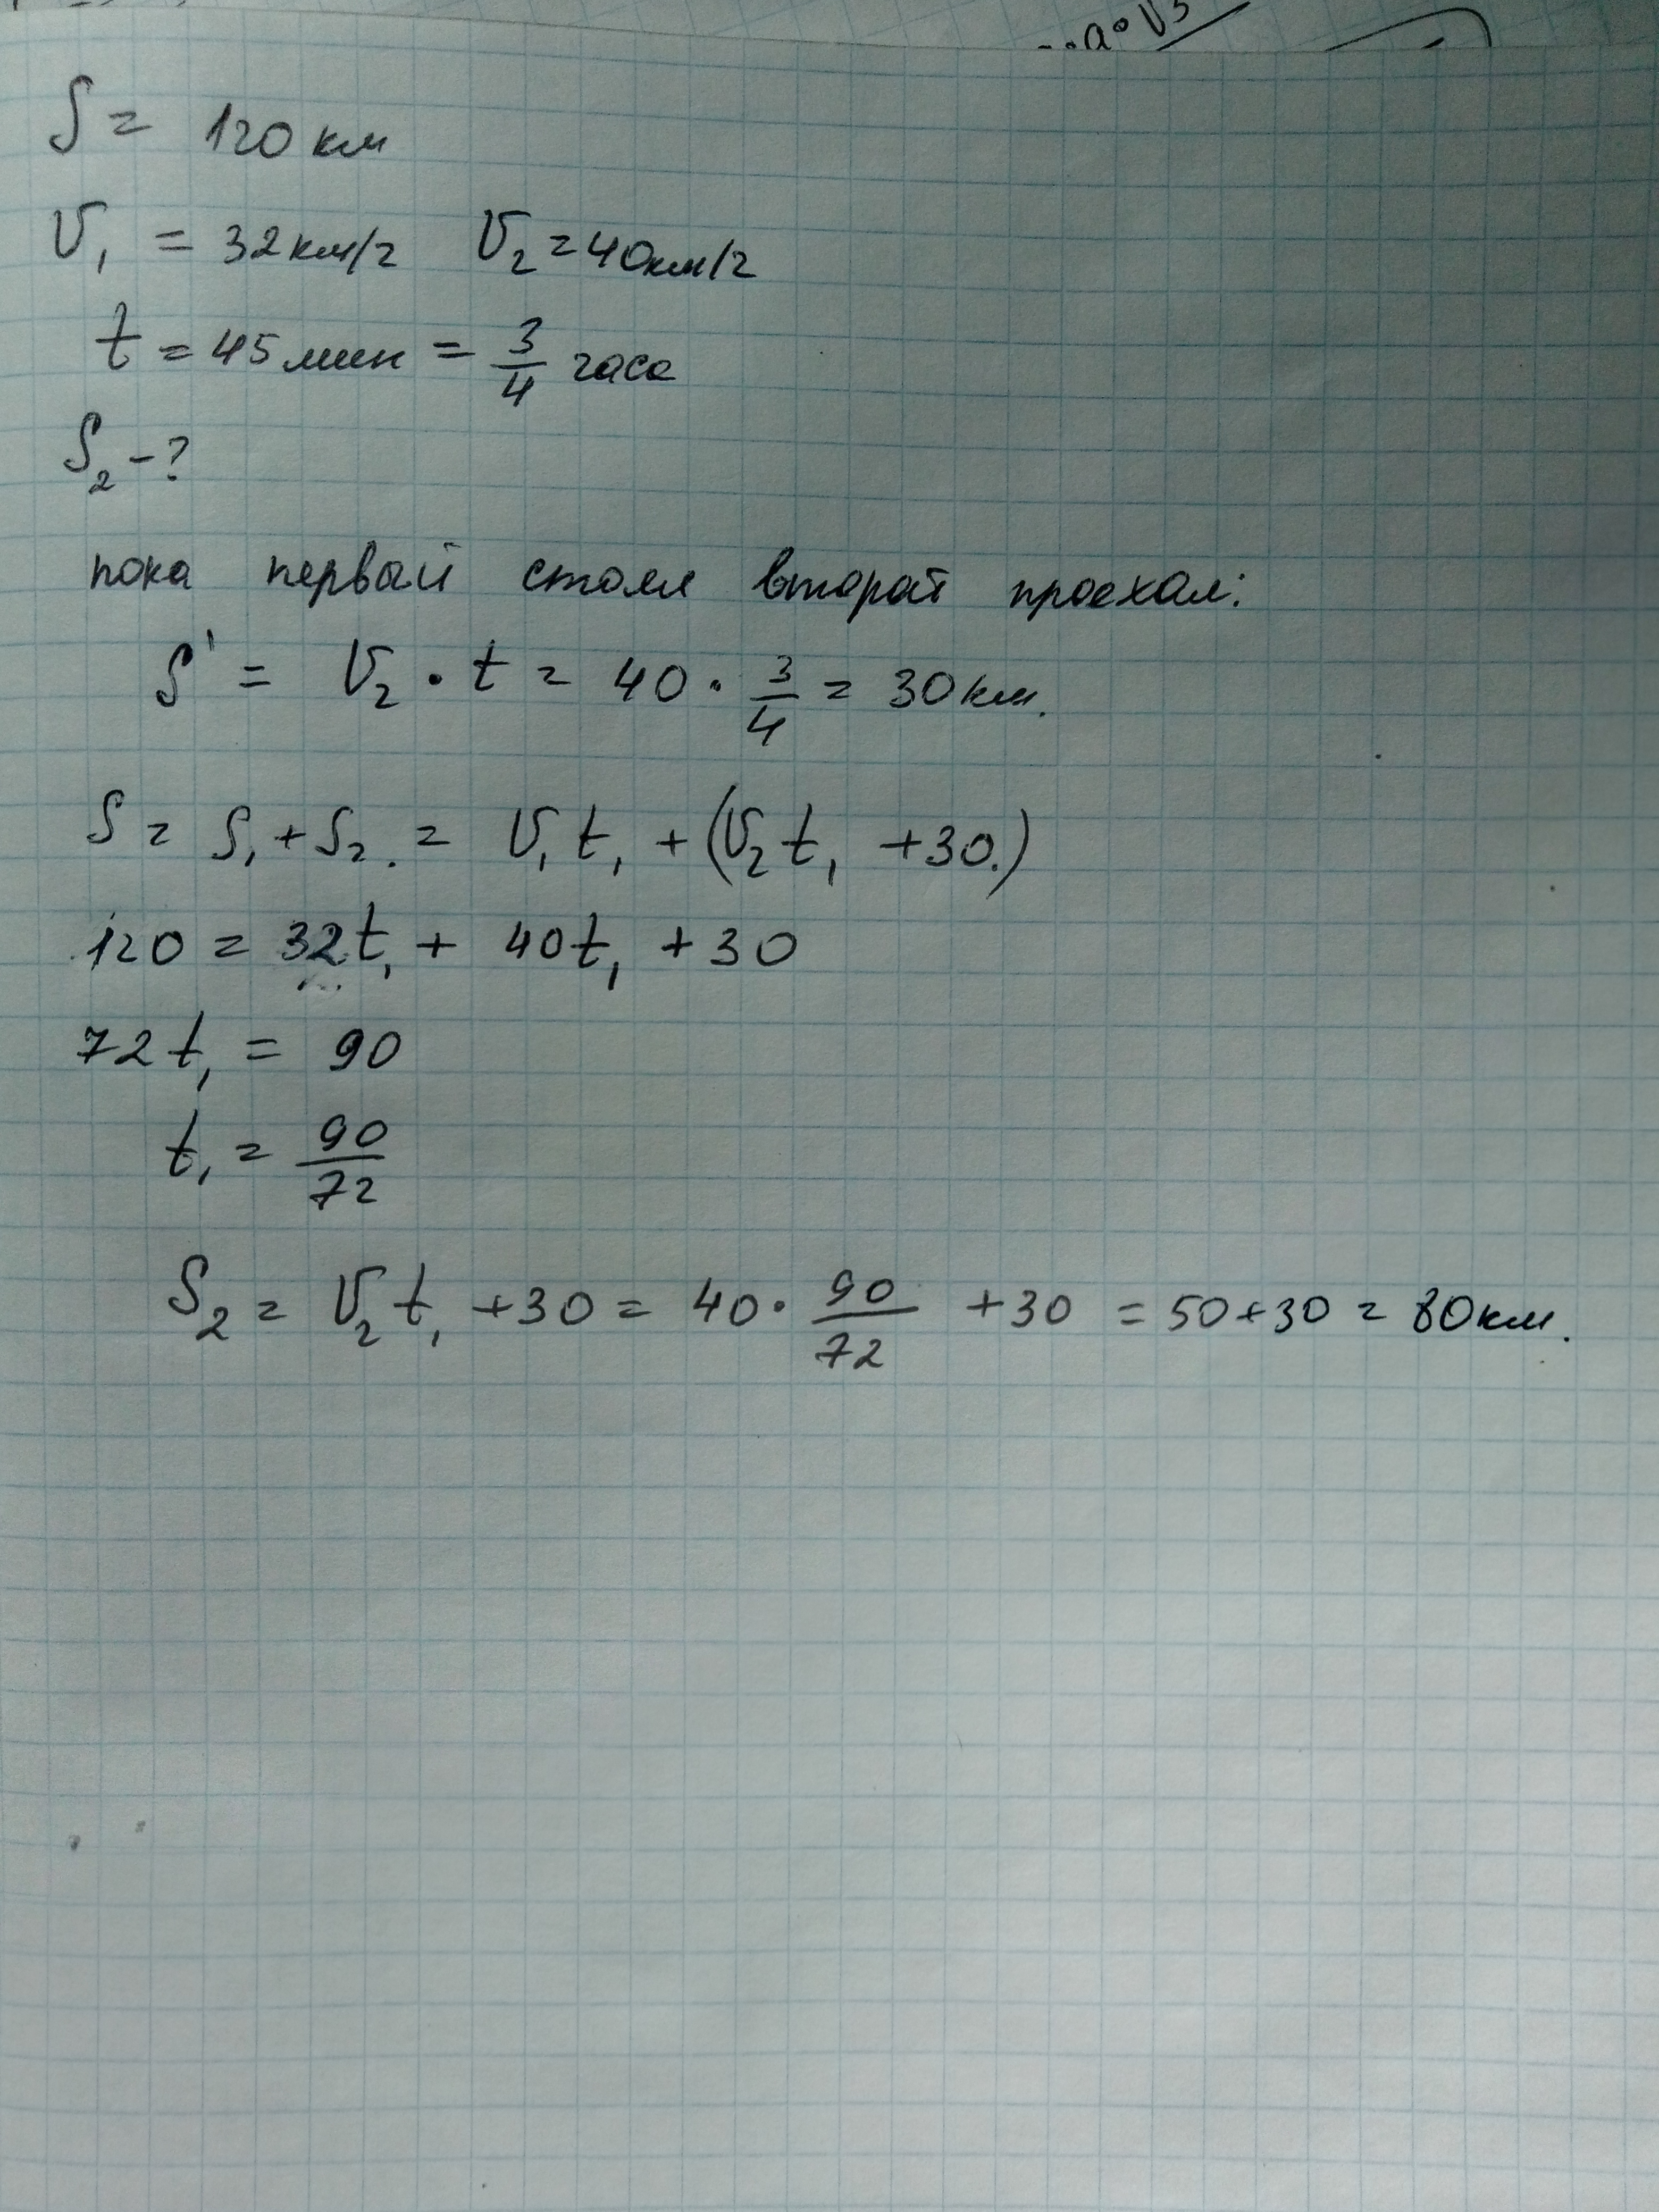 S = 120 км
V₁ = 32 км/ч V₂ = 40 км/ч
t = 45 мин = 3/4 часа
S₂ - ?
пока первый стоял второй проехал:
S' = V₂ · t = 40 · 3/4 = 30 км.
S = S₁ + S₂ = V₁ t₁ + (V₂ t₁ + 30)
120 = 32t₁ + 40t₁ + 30
72t₁ = 90
t₁ = 90/72
S₂ = V₂ t₁ + 30 = 40 · 90/72 + 30 = 50 + 30 = 80 км.